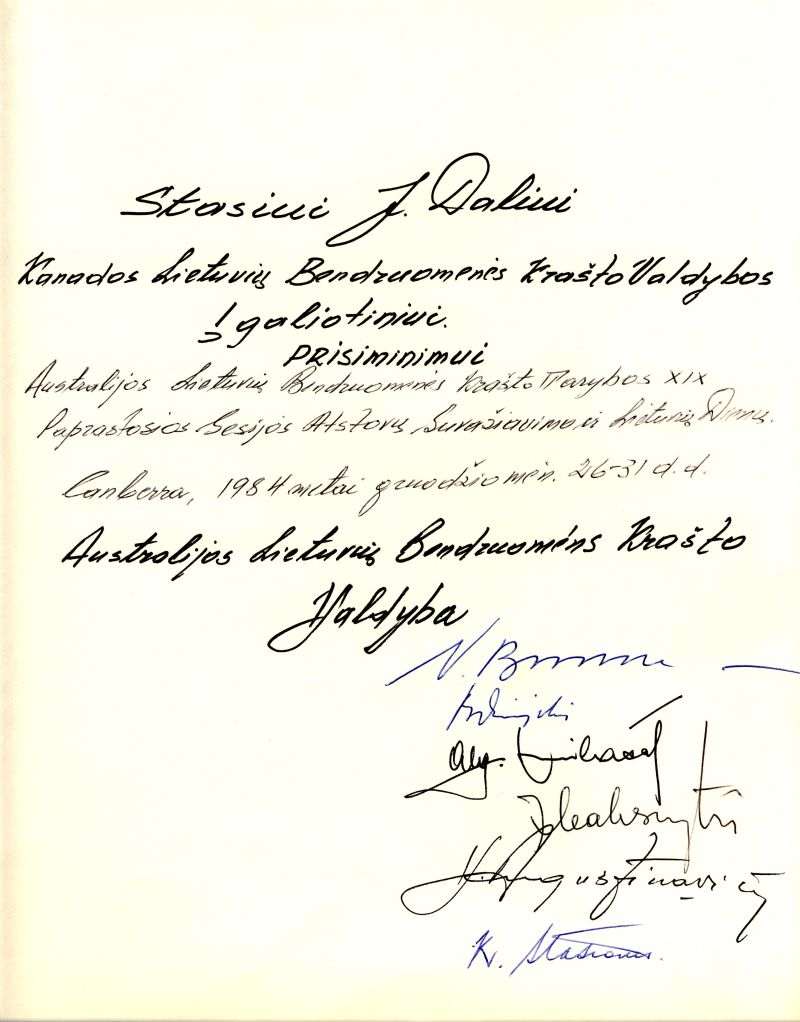 Stasiui J. Daliui
Kanados Lietuvių Bendruomenės Krašto Valdybos
Įgaliotiniui.
PRISIMINIMUI
Australijos Lietuvių Bendruomenės Krašto Tarybos XIX
Paprastosios Sesijos Atstovų Suvažiavimo ir Lietuvių Dienų.
Canberra, 1984 metai gruodžio mėn. 26-31 d.d.
Australijos Lietuvių Bendruomėns Krašto
Valdyba
V.
Alg.
Augustinavič
Kr.